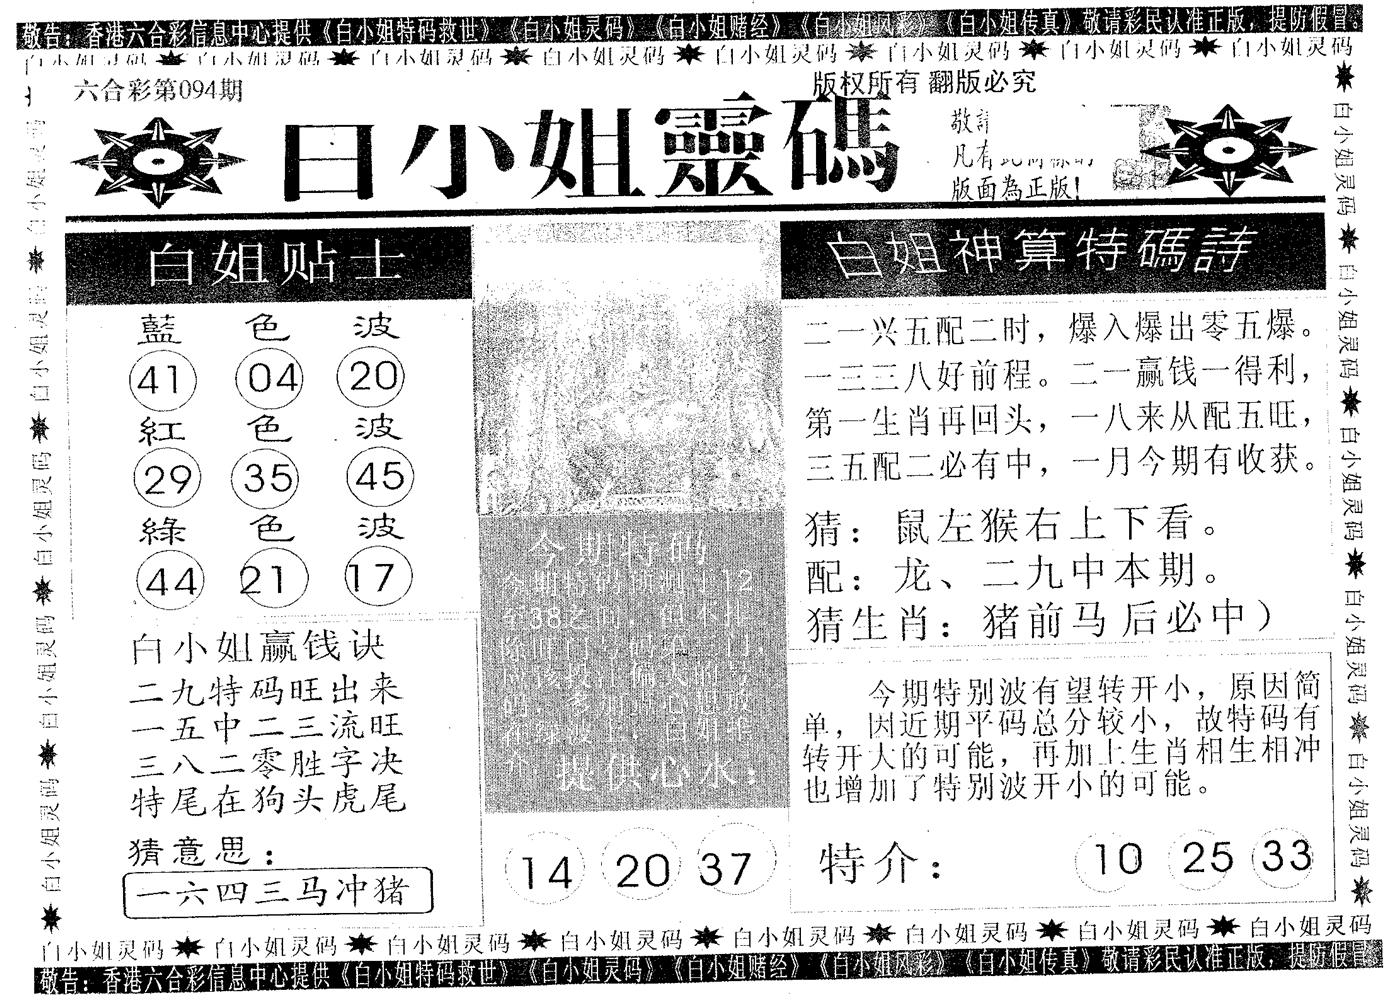 敬告：香港六合彩信息中心提供《白小姐特码救世》《白小姐灵码》《白小姐赌经》《白小姐风彩》《白小姐传真》敬请彩民认准正版，提防假冒。
白小姐灵码 白小姐灵码 白小姐灵码 白小姐灵码 白小姐灵码 白小姐灵码 白小姐灵码 白小姐灵码
六合彩第094期
版权所有 翻版必究
白小姐靈碼
敬
凡有
版面為正版!
白姐贴士
藍色波
41 04 20
紅色波
29 35 45
綠色波
44 21 17
白小姐赢钱诀
二九特码旺出来
一五中二三流旺
三八二零胜字决
特尾在狗头虎尾
猜意思：
一六四三马冲猪
今期特码
12
38之
提供心水：
14 20 37
白姐神算特碼詩
二一兴五配二时，爆入爆出零五爆。
一三三八好前程。二一赢钱一得利，
第一生肖再回头，一八来从配五旺，
三五配二必有中，一月今期有收获。
猜：鼠左猴右上下看。
配：龙、二九中本期。
猜生肖：猪前马后必中）
今期特别波有望转开小，原因简
单，因近期平码总分较小，故特码有
转开大的可能，再加上生肖相生相冲
也增加了特别波开小的可能。
特介：
10 25 33
白小姐灵码 白小姐灵码 白小姐灵码 白小姐灵码 白小姐灵码
白小姐灵码 白小姐灵码 白小姐灵码 白小姐灵码 白小姐灵码
白小姐灵码 白小姐灵码 白小姐灵码 白小姐灵码 白小姐灵码 白小姐灵码 白小姐灵码 白小姐灵码
敬告：香港六合彩信息中心提供《白小姐特码救世》《白小姐灵码》《白小姐赌经》《白小姐风彩》《白小姐传真》敬请彩民认准正版，提防假冒